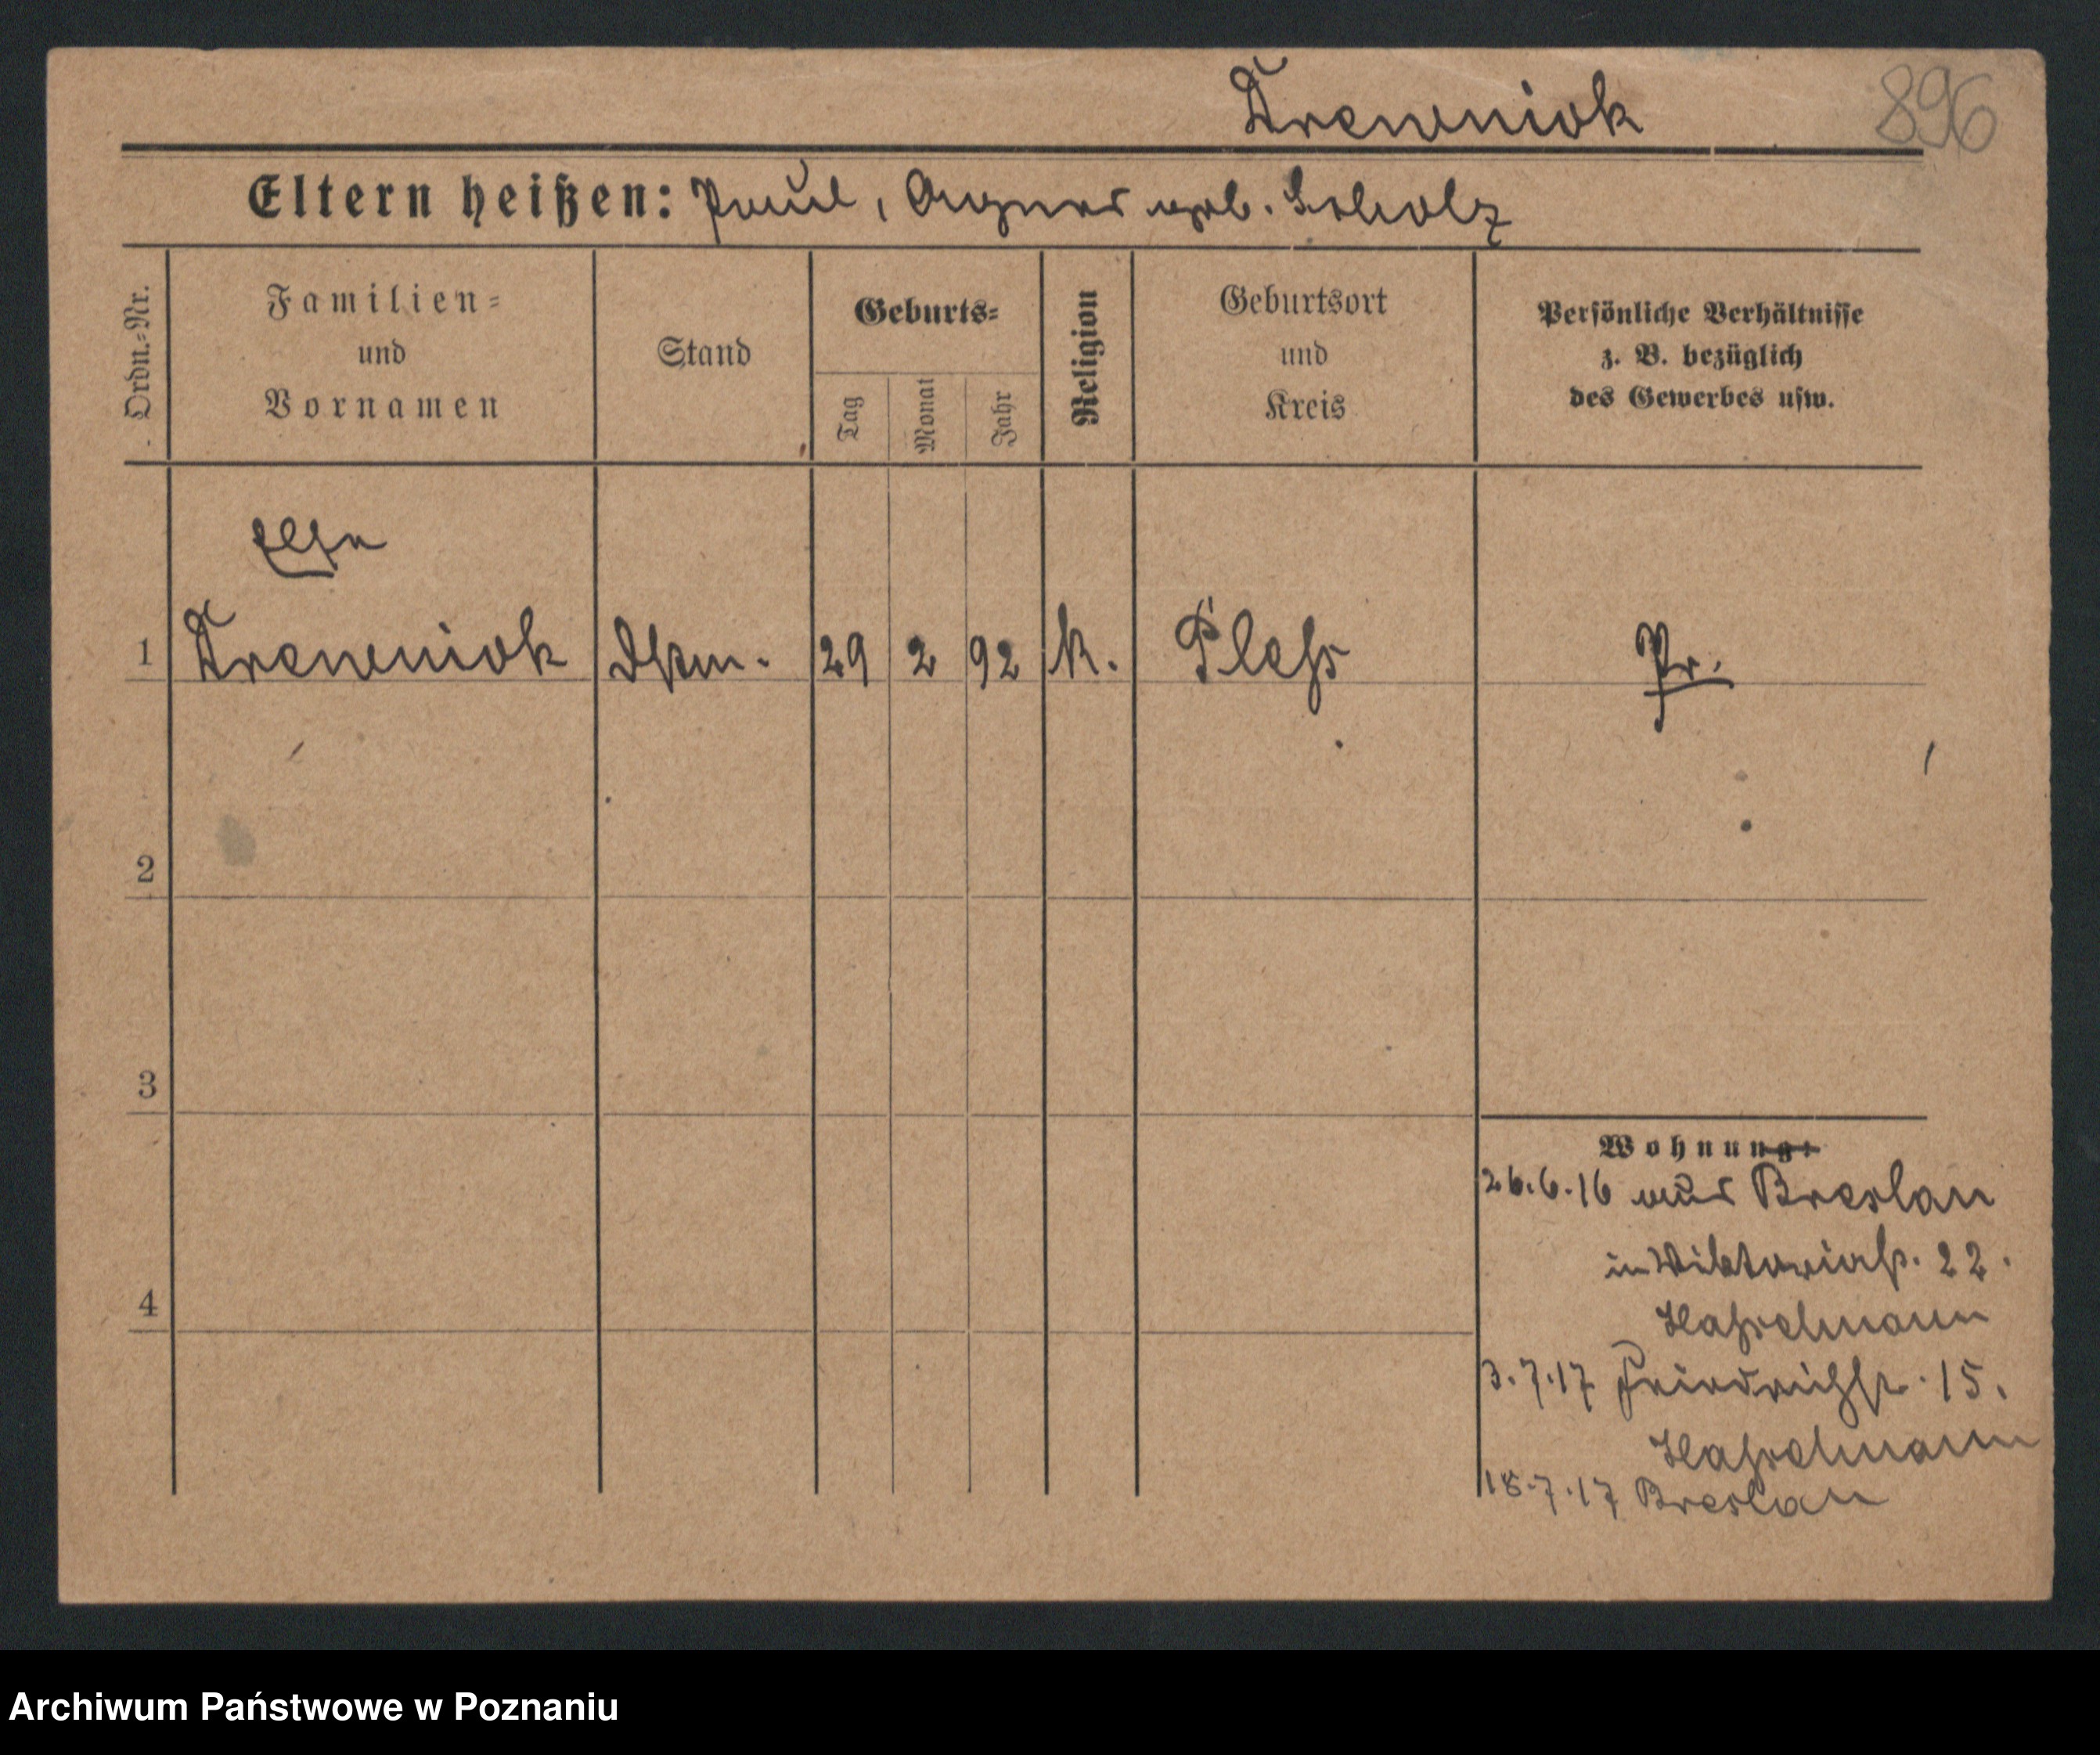 Drewniok
896
Eltern heißen: Paul, Agnes geb. Scholz
Ordn.=Nr.
Familien=
und
Vornamen
Stand
Geburts=
Tag
Monat
Jahr
Religion
Geburtsort
und
Kreis
Persönliche Verhältnisse
z. B. bezüglich
des Gewerbes usw.
Else
1 Drewniok 29 2 92 k. Pless Pr.
2
3
4
Wohnung:
26.6.16 aus Breslau
in Viktoriastr. 22.
Hasselmann
3.7.17 Friedrichstr. 15.
Hasselmann
18.7.17 Breslau
Archiwum Państwowe w Poznaniu